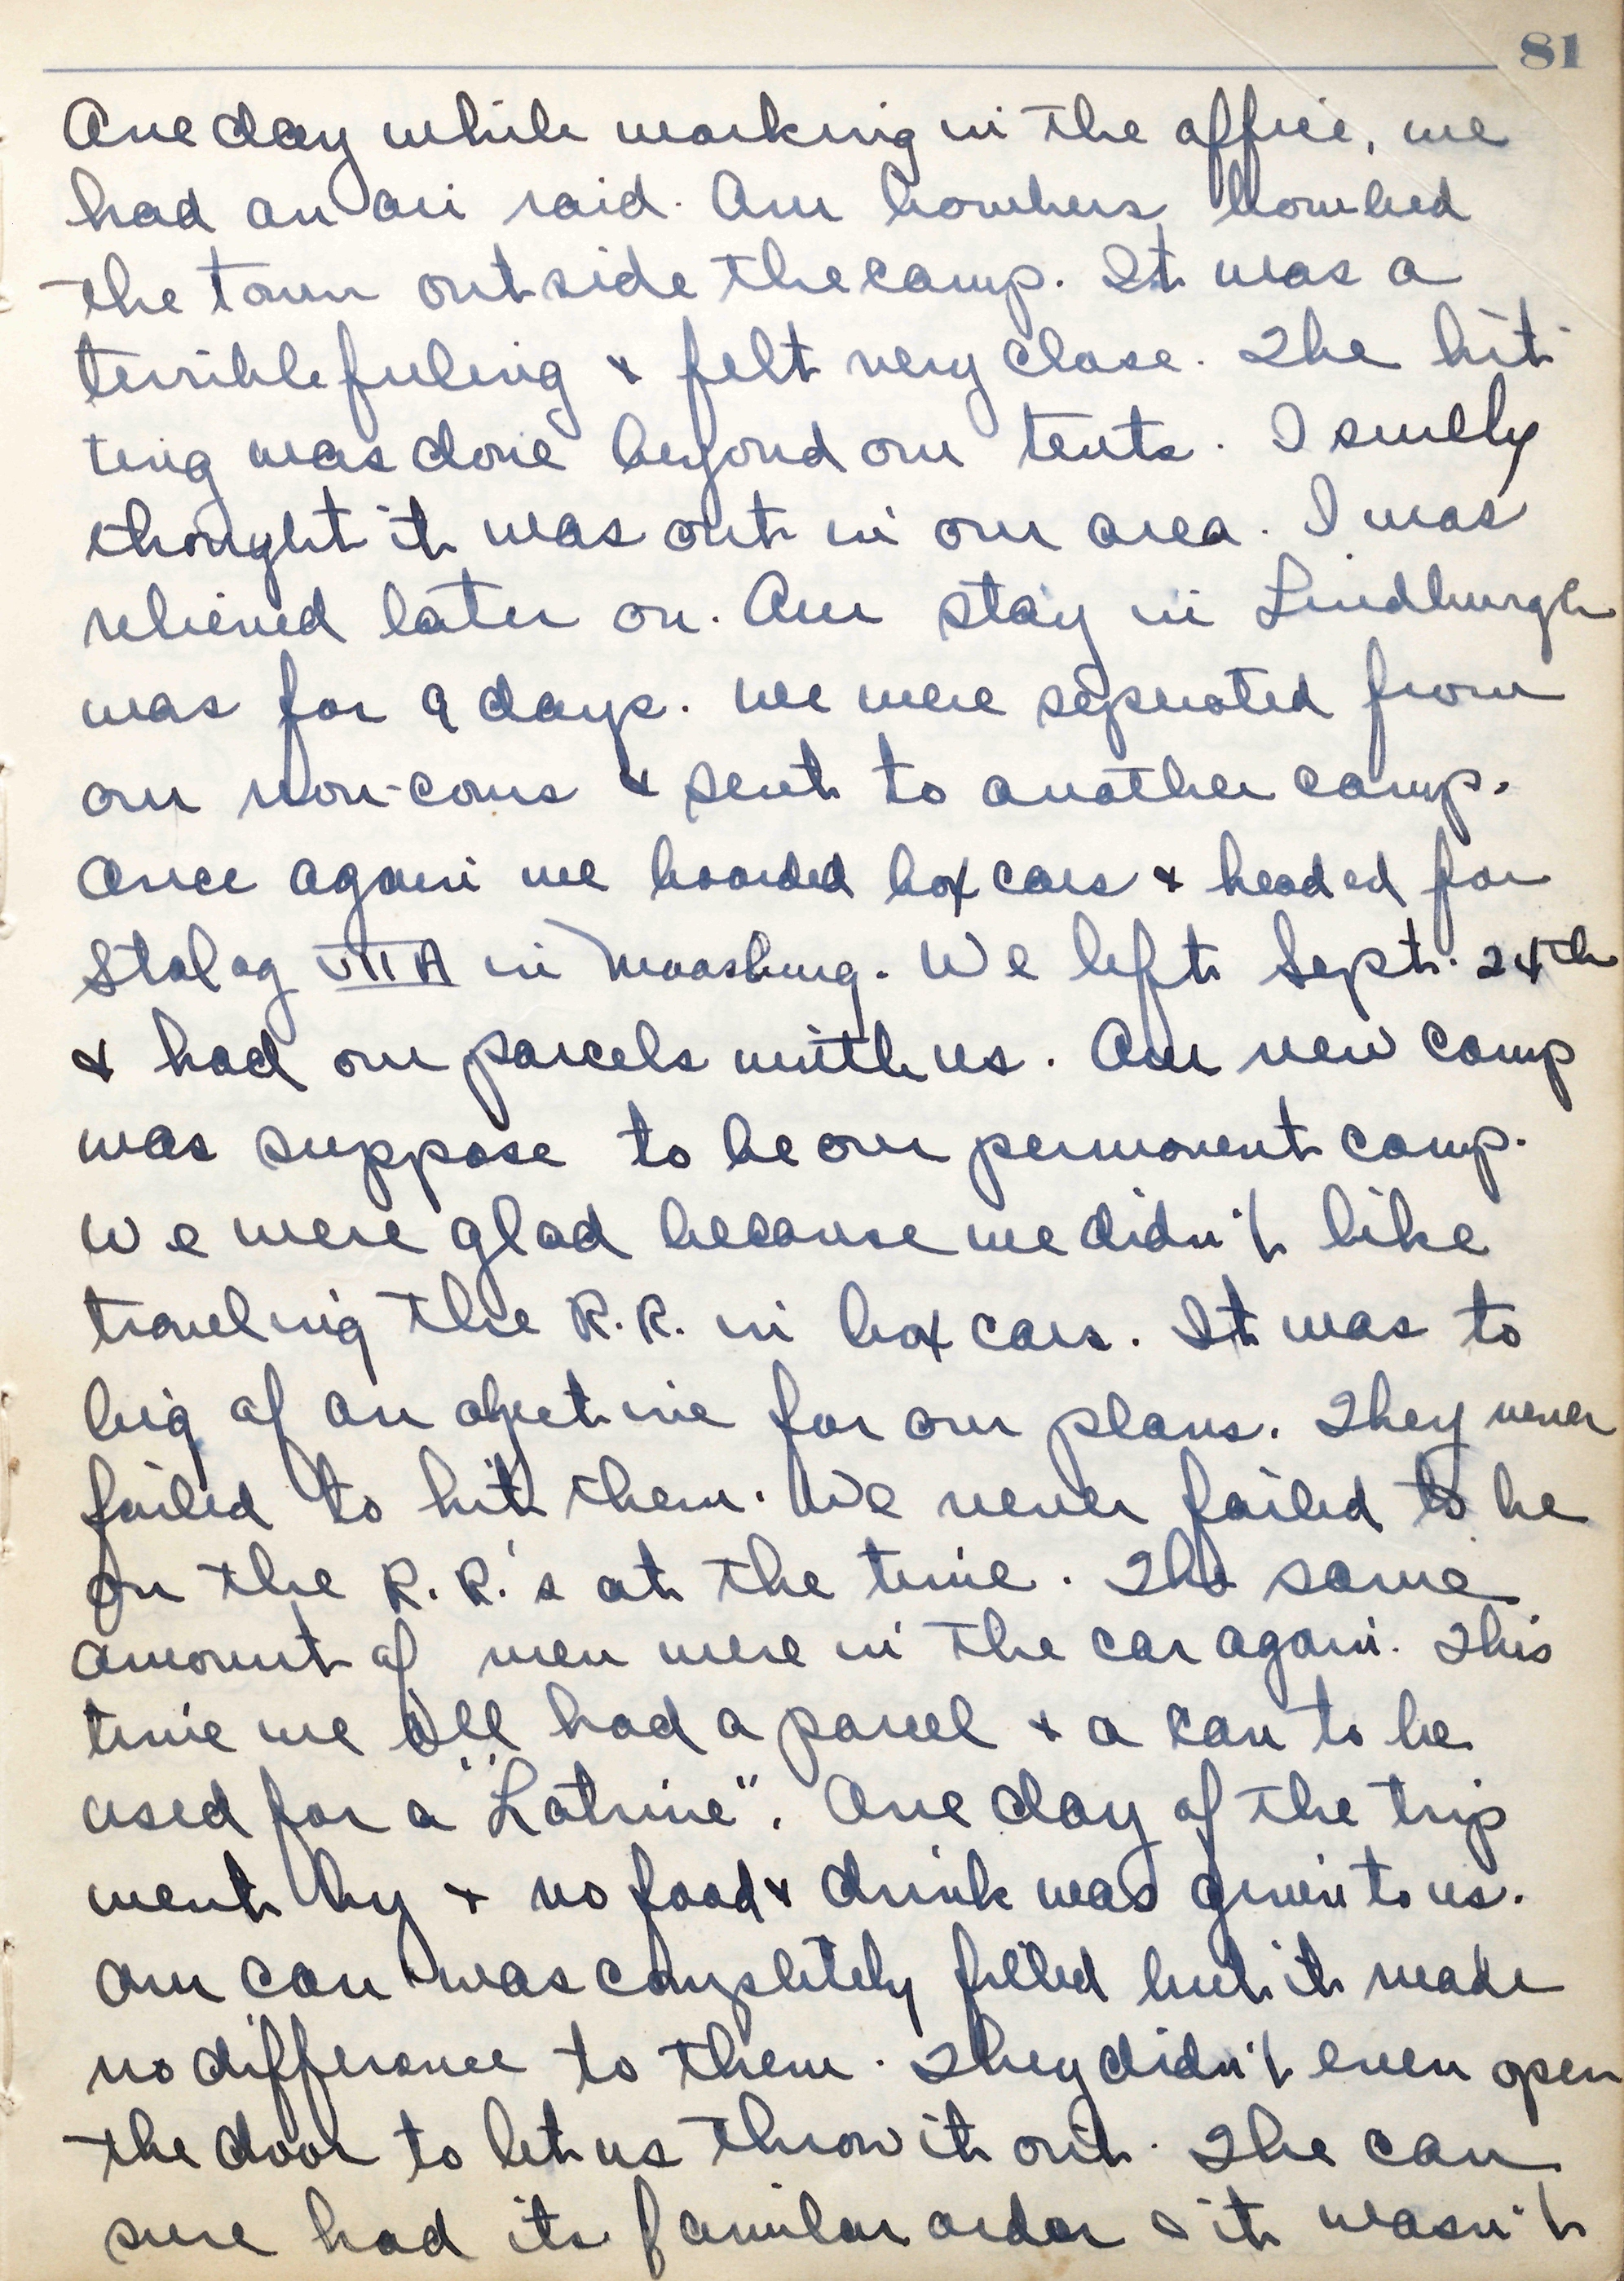 81
One day while working in the office, we
had an air raid. Our bombers bombed
the town outside the camp. It was a
terrible feeling & felt very close. The hit-
ting was done beyond our tents. I surely
thought it was out in our area. I was
relieved later on. Our stay in Lindburgh
was for 9 days. We were seperated from
our non-coms & sent to another camp.
Once again we boarded box cars & headed for
Stalag VIIA in Moosburg. We left Sept. 24th
& had our parcels with us. Our new camp
was suppose to be our permanent camp.
We were glad because we didn't like
traveling the R.R. in box cars. It was to
big of an objective for our plans. They never
failed to hit them. We never failed to be
on the R.R.'s at the time. The same
amount of men were in the car again. This
time we all had a parcel & a can to be
used for a "Latrine". One day of the trip
went by & no food & drink was given to us.
Our can was completely filled but it made
no difference to them. They didn't even open
the door to let us throw it out. The can
sure had its familar order & it wasn't